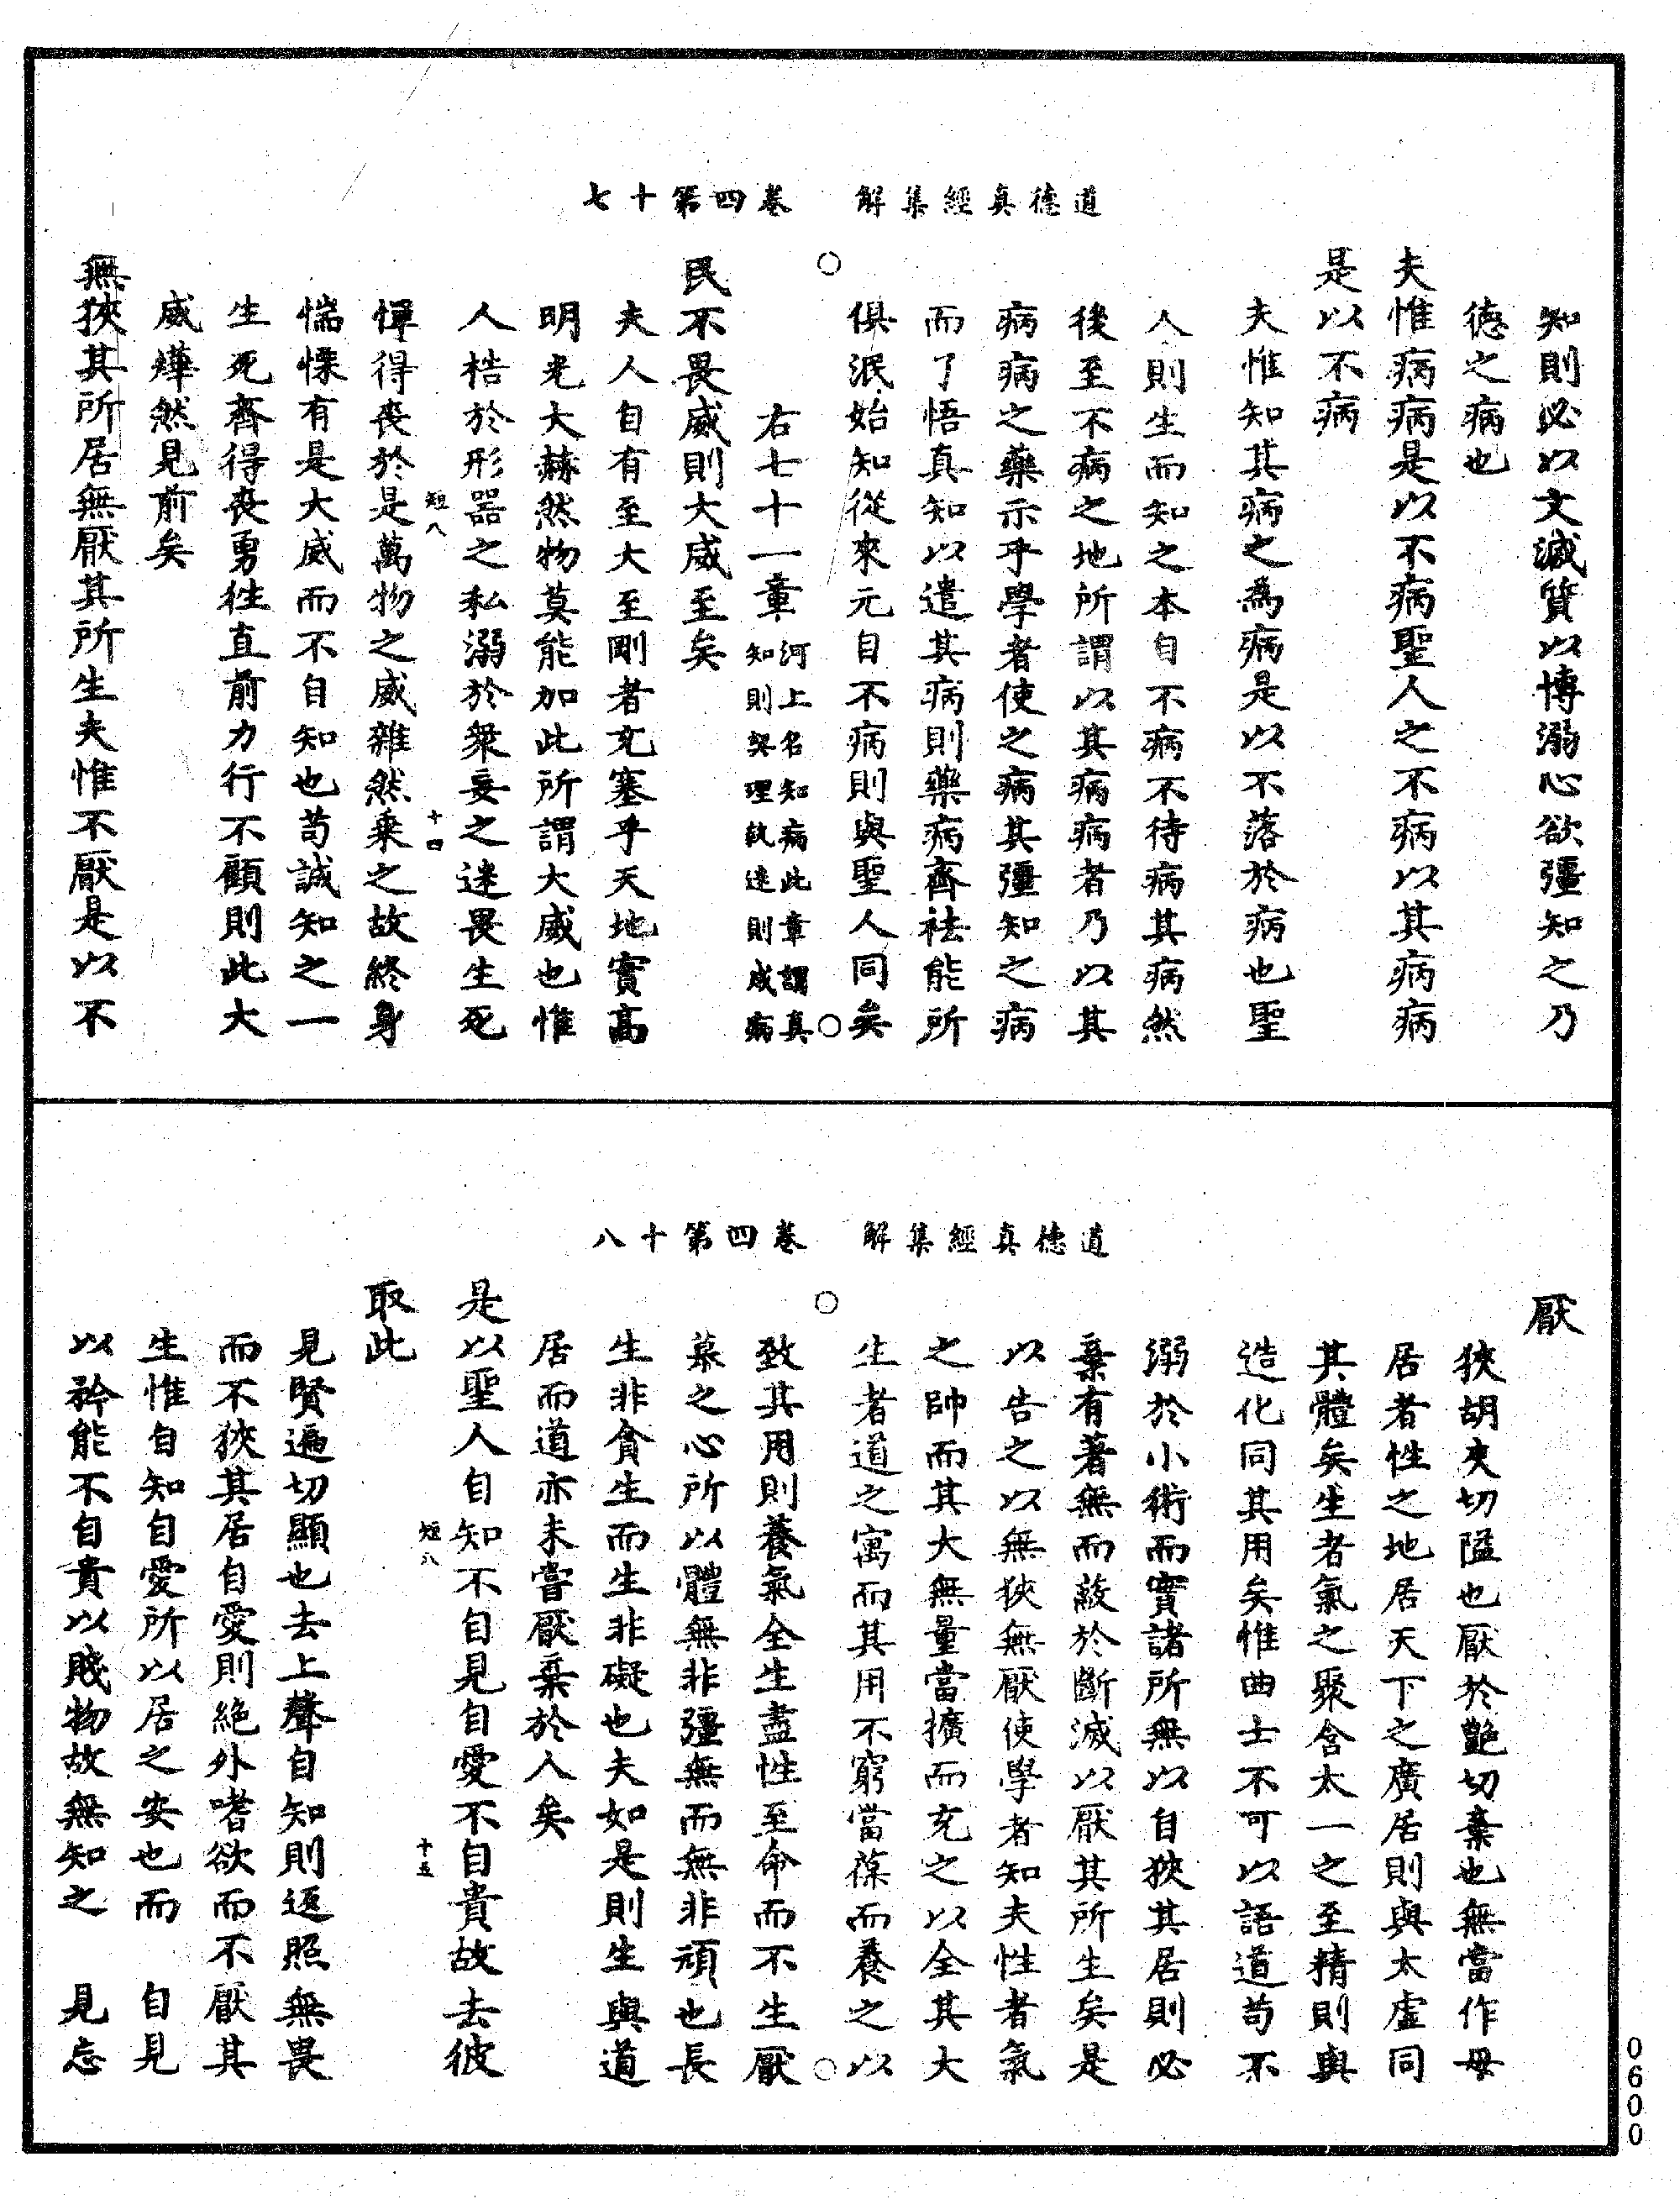 道德真經集解　卷四第十七
知則必以文滅質以博溺心欲彊知之乃
德之病也
夫惟病病是以不病聖人之不病以其病病
是以不病
夫惟知其病之為病是以不落於病也聖
人則生而知之本自不病不待病其病然
後至不病之地所謂以其病病者乃以其
病病之藥示乎學者使之病其彊知之病
而了悟真知以遣其病則藥病齊祛能所
俱泯始知從來元自不病則與聖人同矣
右七十一章河上名知病此章謂真
知則契理執迷則成病
民不畏威則大威至矣
夫人自有至大至剛者充塞乎天地實高
明光大赫然物莫能加此所謂大威也惟
人梏於形器之私溺於衆妄之迷畏生死
短八　十四
憚得喪於是萬物之威雜然乘之故終身
惴慄有是大威而不自知也苟誠知之一
生死齊得喪勇往直前力行不顧則此大
威燁然見前矣
無狹其所居無厭其所生夫惟不厭是以不
道德真經集解　卷四第十八
厭
狹胡夾切隘也厭於艷切棄也無當作毋
居者性之地居天下之廣居則與太虛同
其體矣生者氣之聚含太一之至精則與
造化同其用矣惟曲士不可以語道苟不
溺於小術而實諸所無以自狹其居則必
棄有著無而蔽於斷滅以厭其所生矣是
以告之以無狹無厭使學者知夫性者氣
之帥而其大無量當擴而充之以全其大
生者道之寓而其用不窮當葆而養之以
致其用則養氣全生盡性至命而不生厭
慕之心所以體無非彊無而無非頑也長
生非貪生而生非礙也夫如是則生與道
居而道亦未嘗厭棄於人矣
是以聖人自知不自見自愛不自貴故去彼
短八　十五
取此
見賢遍切顯也去上聲自知則返照無畏
而不狹其居自愛則絕外嗜欲而不厭其
生惟自知自愛所以居之安也而　自見
以矜能不自貴以賤物故無知之　見忘
0600